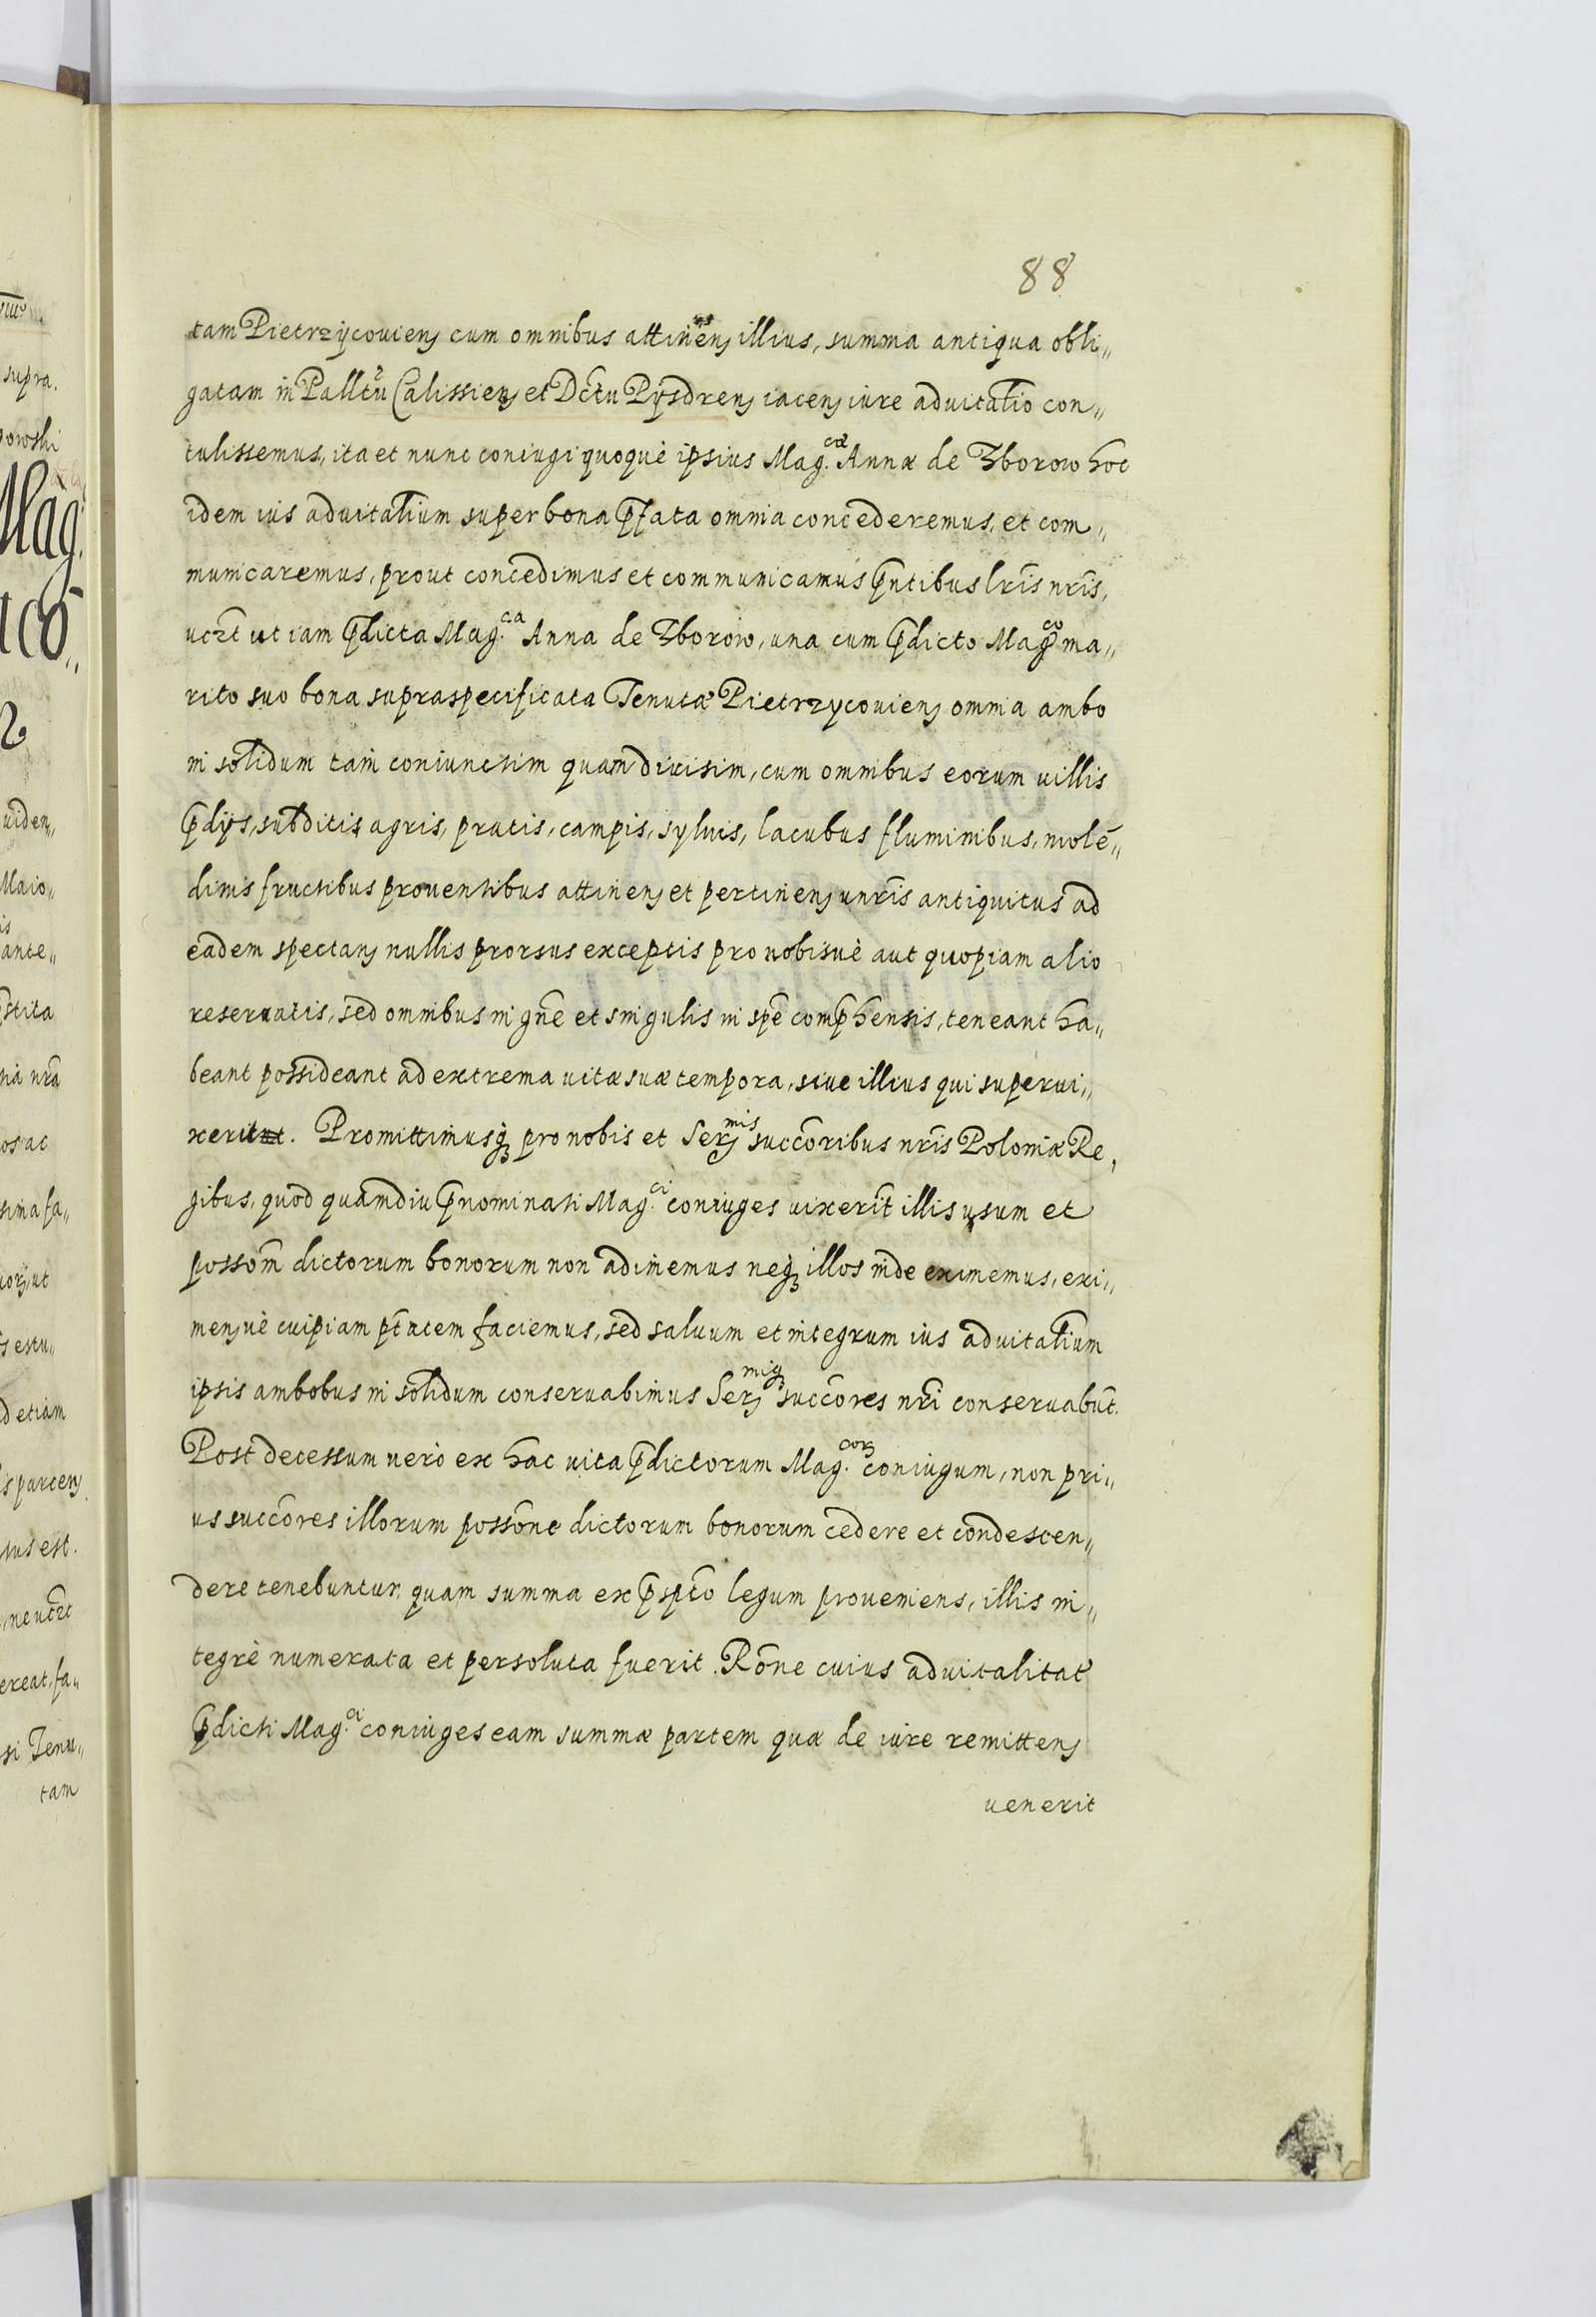 88
tam Pietrzÿcouien̄ cum omnibus attinen̄ illius, summa antiqua obli„
gatam in Palltū Calissien̄ et Dc̄tu Pÿsdren̄ iacen̄ iure aduitalio con„
tulissemus, ita et nunc coniugi quoquè ipsius Mag.cæ Annæ de Zborow hoc
idem ius aduitalium super bona p̄fata omnia concederemus, et com„
municaremus, prout concedimus et communicamus p̄ntibus lr̄is nr̄is,
uczt ut iam p̄dicta Mag.ca Anna de Zborow, una cum p̄dicto Mag.co ma„
rito suo bona supraspecificata Tenutæ Pietrzycouien̄ omnia ambo
in solidum tam coniunctim quam diuisim, cum omnibus eorum uillis
p̄dijs, subditis agris, pratis, campis, syluis, lacubus fluminibus, molē„
dinis fructibus prouentibus attinen̄ et pertinen̄ unr̄is antiquitus ad
eadem spectan̄ nullis prorsus exceptis pro nobisuè aut quopiam alio
reseruatis, sed omnibus in gn̄e et singulis in spē comp̄hensis, teneant ha„
beant possideant ad extrema uitæ suæ tempora, siue illius qui superui„
xerit. Promittimusq́ʒ pro nobis et Ser.mis succ̄oribus nr̄is Poloniæ Re„
gibus, quod quamdiu p̄nominati Mag.ci coniuges uixerīt illis usum et
possom̄ dictorum bonorum non adimemus neqʒ illos inde eximemus, exi„
men̄uè cuipiam pt̄atem faciemus, sed saluum et integrum ius aduitalium
ipsis ambobus in solidum conseruabimus Ser.miqʒ succ̄ores nr̄i conseruabūt.
Post decessum uerò ex hac uita p̄dictorum Mag.corʒ coniugum, non pri„
us succ̄ores illorum possōne dictorum bonorum cedere et condescen„
dere tenebuntur, quam summa ex p̄sp̄to legum proueniens, illis in„
tegrè numerata et persoluta fuerit. Rōne cuius aduitalitat̄
p̄dicti Mag.ci coniuges eam summæ partem quæ de iure remitten̄
uenerit